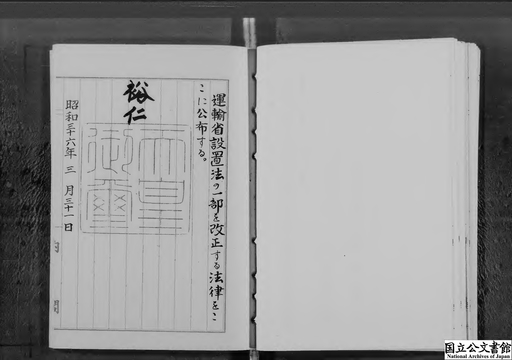 運輸省設置法の一部を改正する法律をこ
こに公布する。
裕仁
天皇御璽
昭和三十六年三月三十一日
国立公文書館
National Archives of Japan